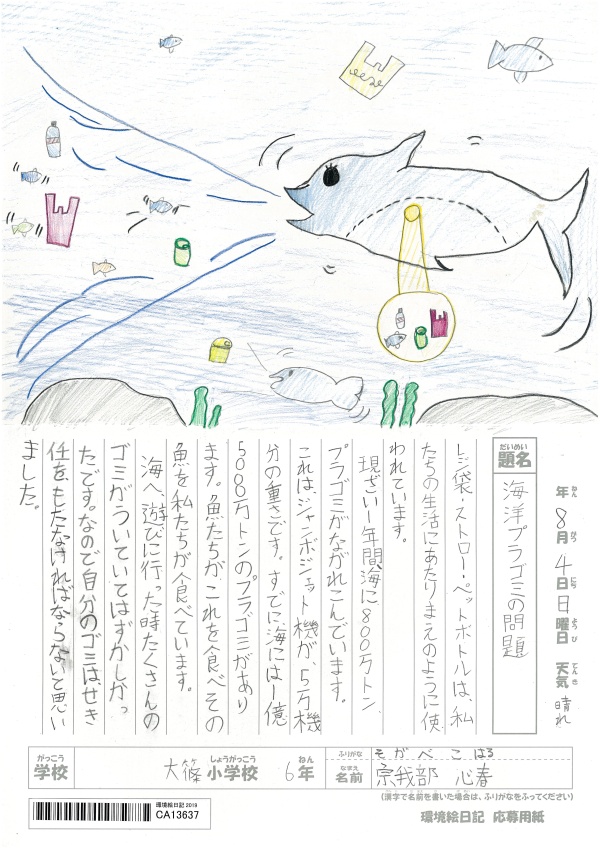 年 8月 4日 日曜日 天気 晴れ
ねん がつ にち ようび てんき
だいめい
題名 海洋プラゴミの問題
レジ袋・ストロー・ペットボトルは、私
たちの生活にあたりまえのように使
われています。
現ざい一年間海に800万トン、
プラゴミがながれこんでいます。
これはジャンボジェット機が、5万機
分の重さです。すでに、海には一億
5000万トンのプラゴミがあり
ます。魚たちが、これを食べその
魚を私たちが食べています。
海へ、遊びに行った時たくさんの
ゴミがういていてはずかしかっ
たです。なので自分のゴミは、せき
任を、もたなければならないと思い
ました。
がっこう しょうがっこう ねん
学校 大篠 小学校 6年
ふりがな そがべ こはる
なまえ
名前 宗我部 心春
(漢字で名前を書いた場合は、ふりがなをふってください)
環境絵日記 2019
CA13637
環境絵日記 応募用紙